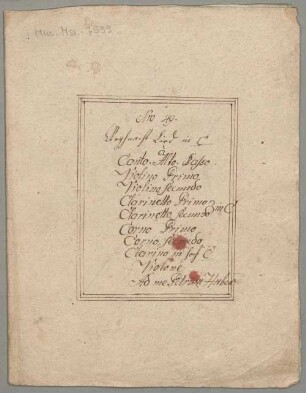 Mus. Ms.
Nro 49.
Lied in C
Canto. Alto. Basso.
Violino Primo
Violino secundo
Clarinetto Primo
Clarinetto secundo in C
Corno Primo
Corno, secundo
Clarino in C
Violone
Ad me